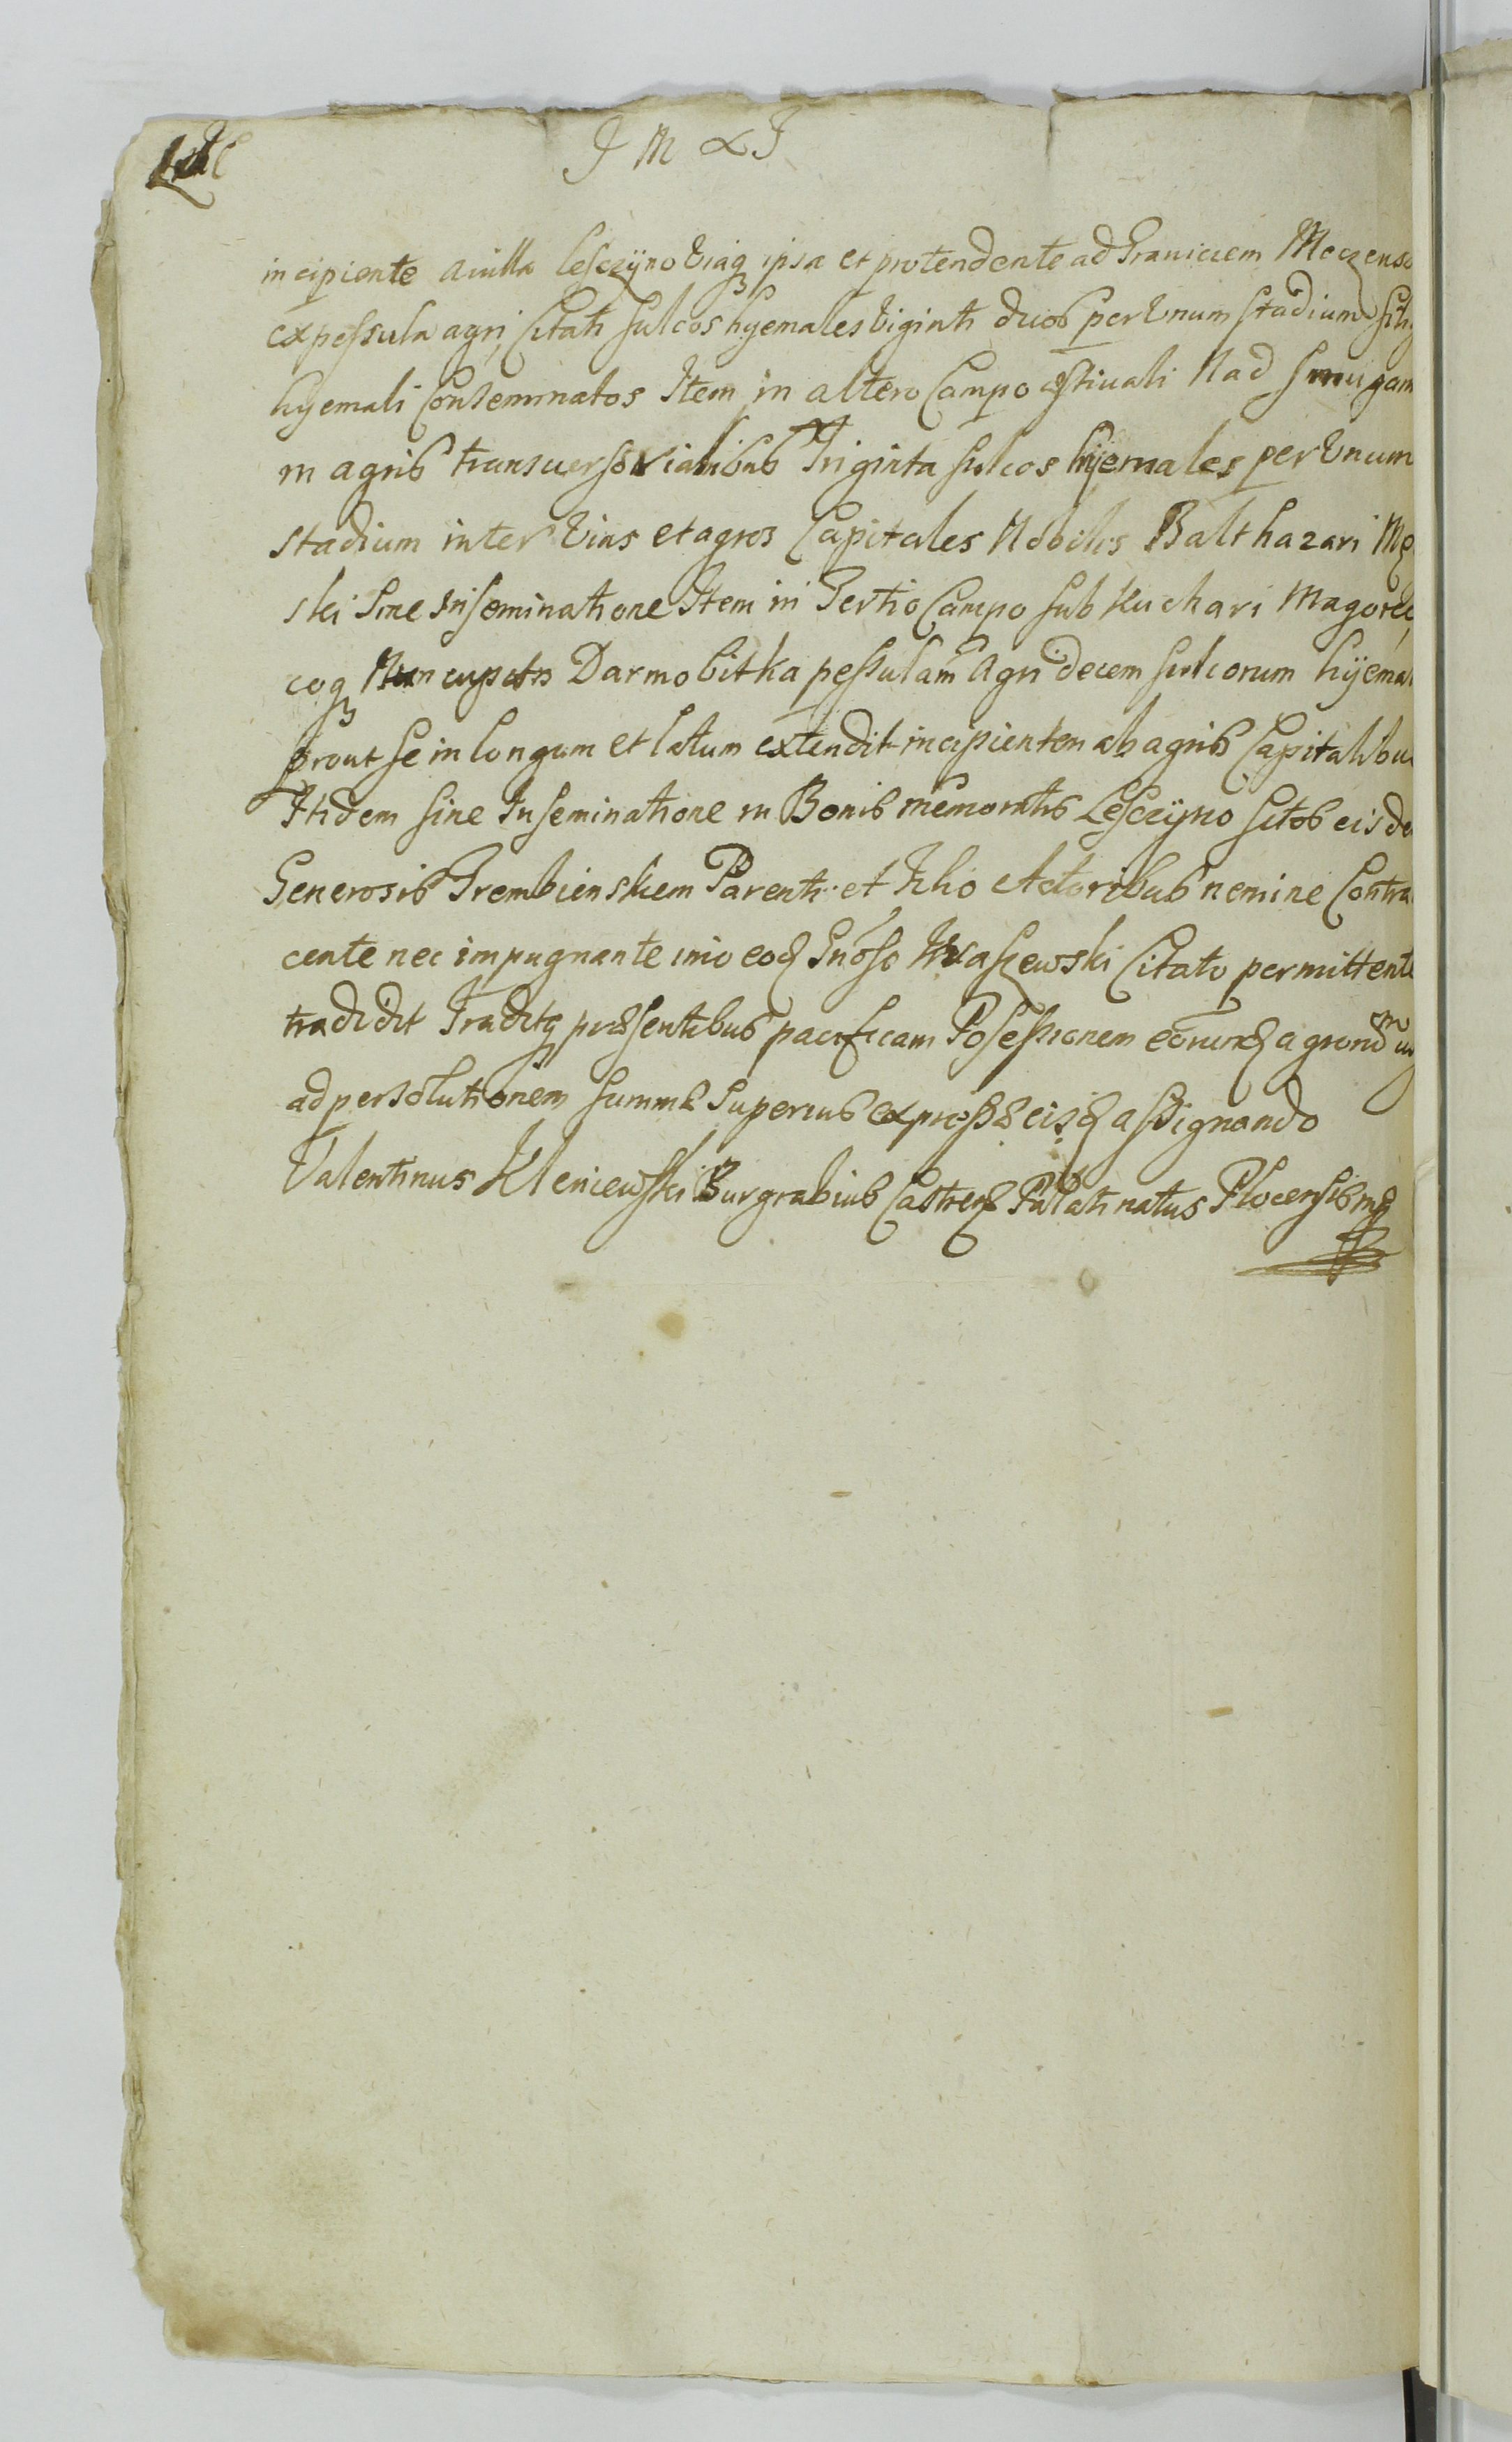 J M & J
incipiente a villa Lesczÿno viaq3 ipsa et protendente ad Graniciem
ex pessula agri Citati sulcos hyemales viginti duos per Vnum stadium
hyemali Conseminatos Item in altero Campo æstiuali Nad smugam
in agris transuersorialibus Triginta sulcos hÿemales per Vnum
stadium inter Vias et agros Capitales Nobilis Balthazari
ski sine Inseminatione Item in Tertio Campo sub Kuchari
Darmobitka pessulam Agri decem sulcorum
prout se in longum et latum extendit incipientem ab agris
Itidem sine Inseminatione in Bonis memoratis Lesczÿno sitos
Generosis Trembienskiem Parenti et Filio Actoribus nemine
cente nec impugnante imo eod Gnoso Citato
tradidit Traditq3 præsentibus pacificam Posessionem
ad persolutionem summæ superius expressæ eisd assignando
Valentinus Kleniewski Burgrabius Castren Palatinatus Plocensis mp